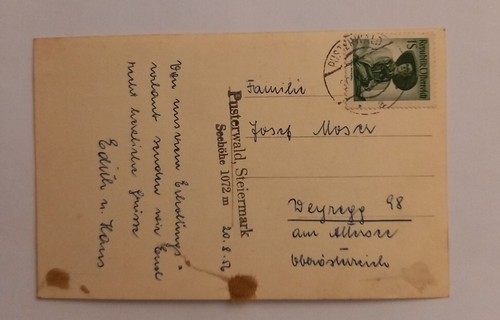 Von unserem Erholungs=
urlaub senden wir Euch
recht herzliche Grüsse
Edith u. Hans
Pusterwald, Steiermark
Seehöhe 1072 m
20.8.
Familie
Josef Moser
Weyregg 98
am Attersee
Oberösterreich
Republik Österreich
1S